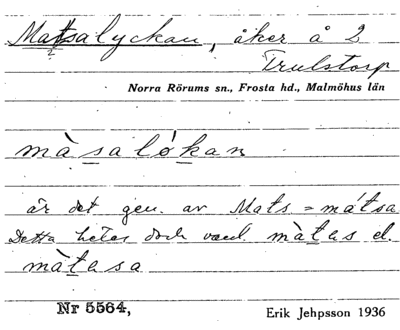 Matsalyckan, åker å 2
Trulstorp
Norra Rörums sn., Frosta hd., Malmöhus län
màsalókan
är det gen. av Mats = mátsa
Detta hetes dock vanl. màtas el.
màtasa
Nr 5564,
Erik Jehpsson 1936